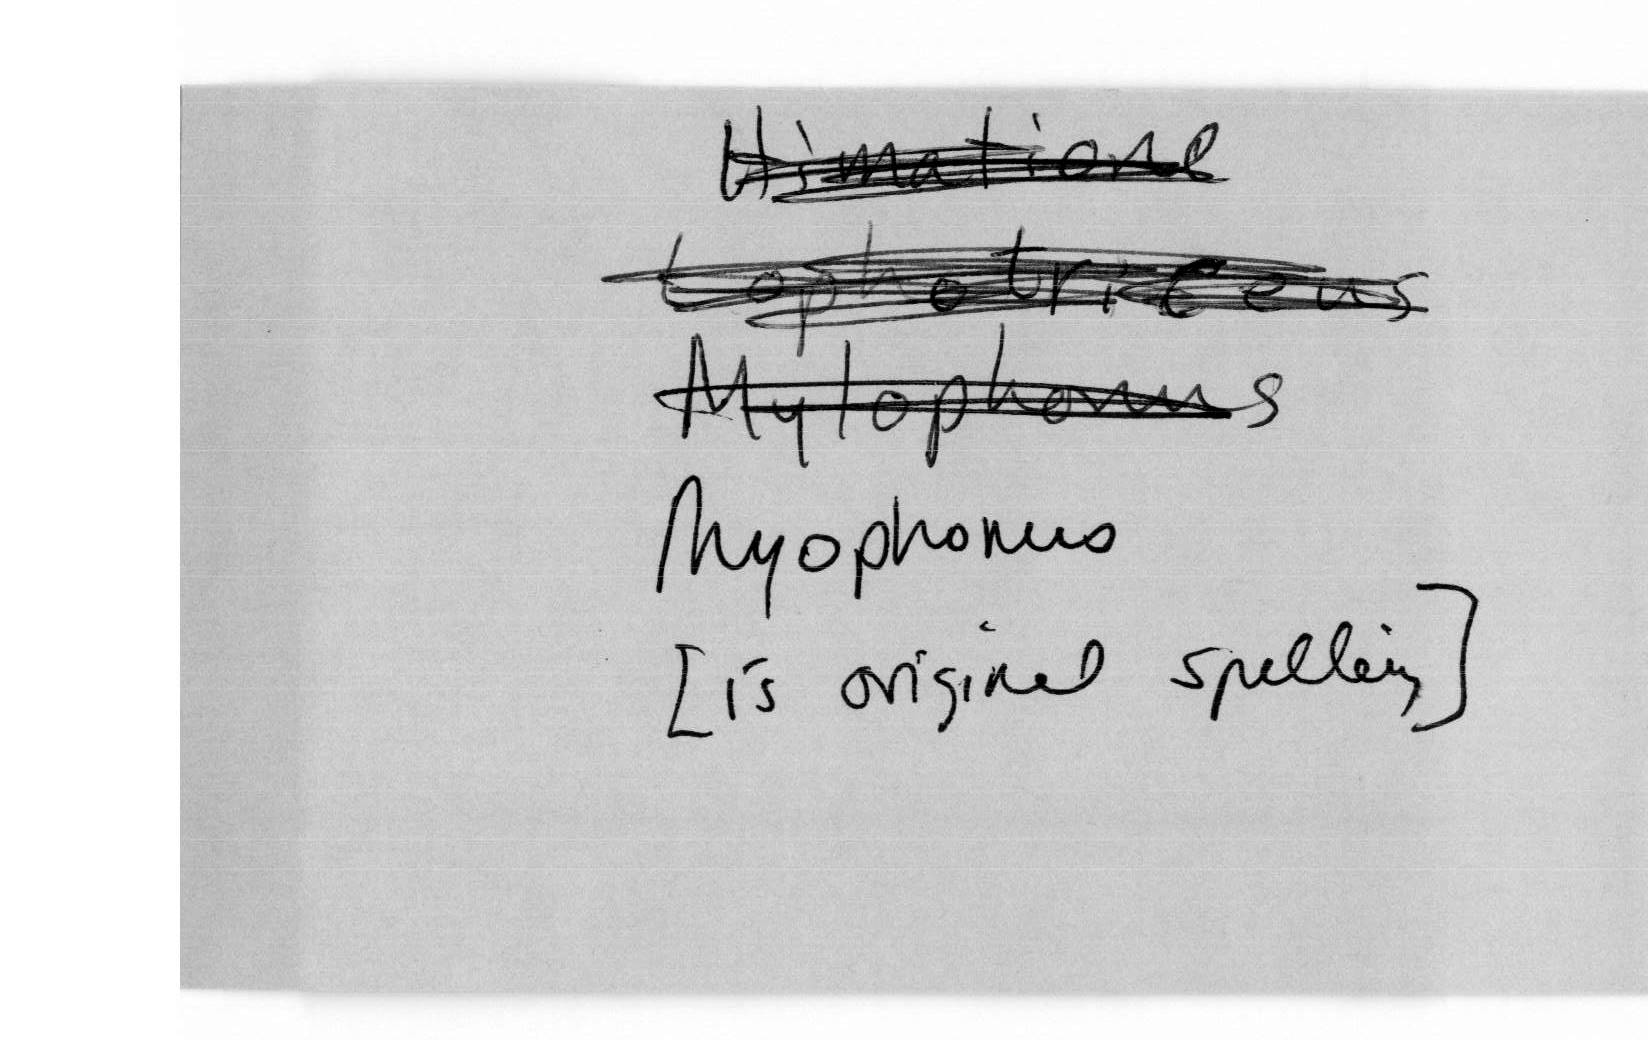 Himatione
Lophotriccus
Mylophonus
Myophonus
[is original spelling]